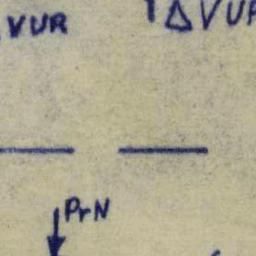 VUR ΔVUR
PrN